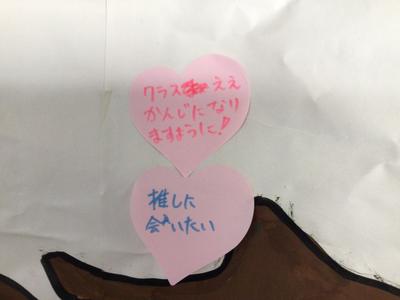 クラスがええ
かんじになり
ますように!
推しに
会いたい